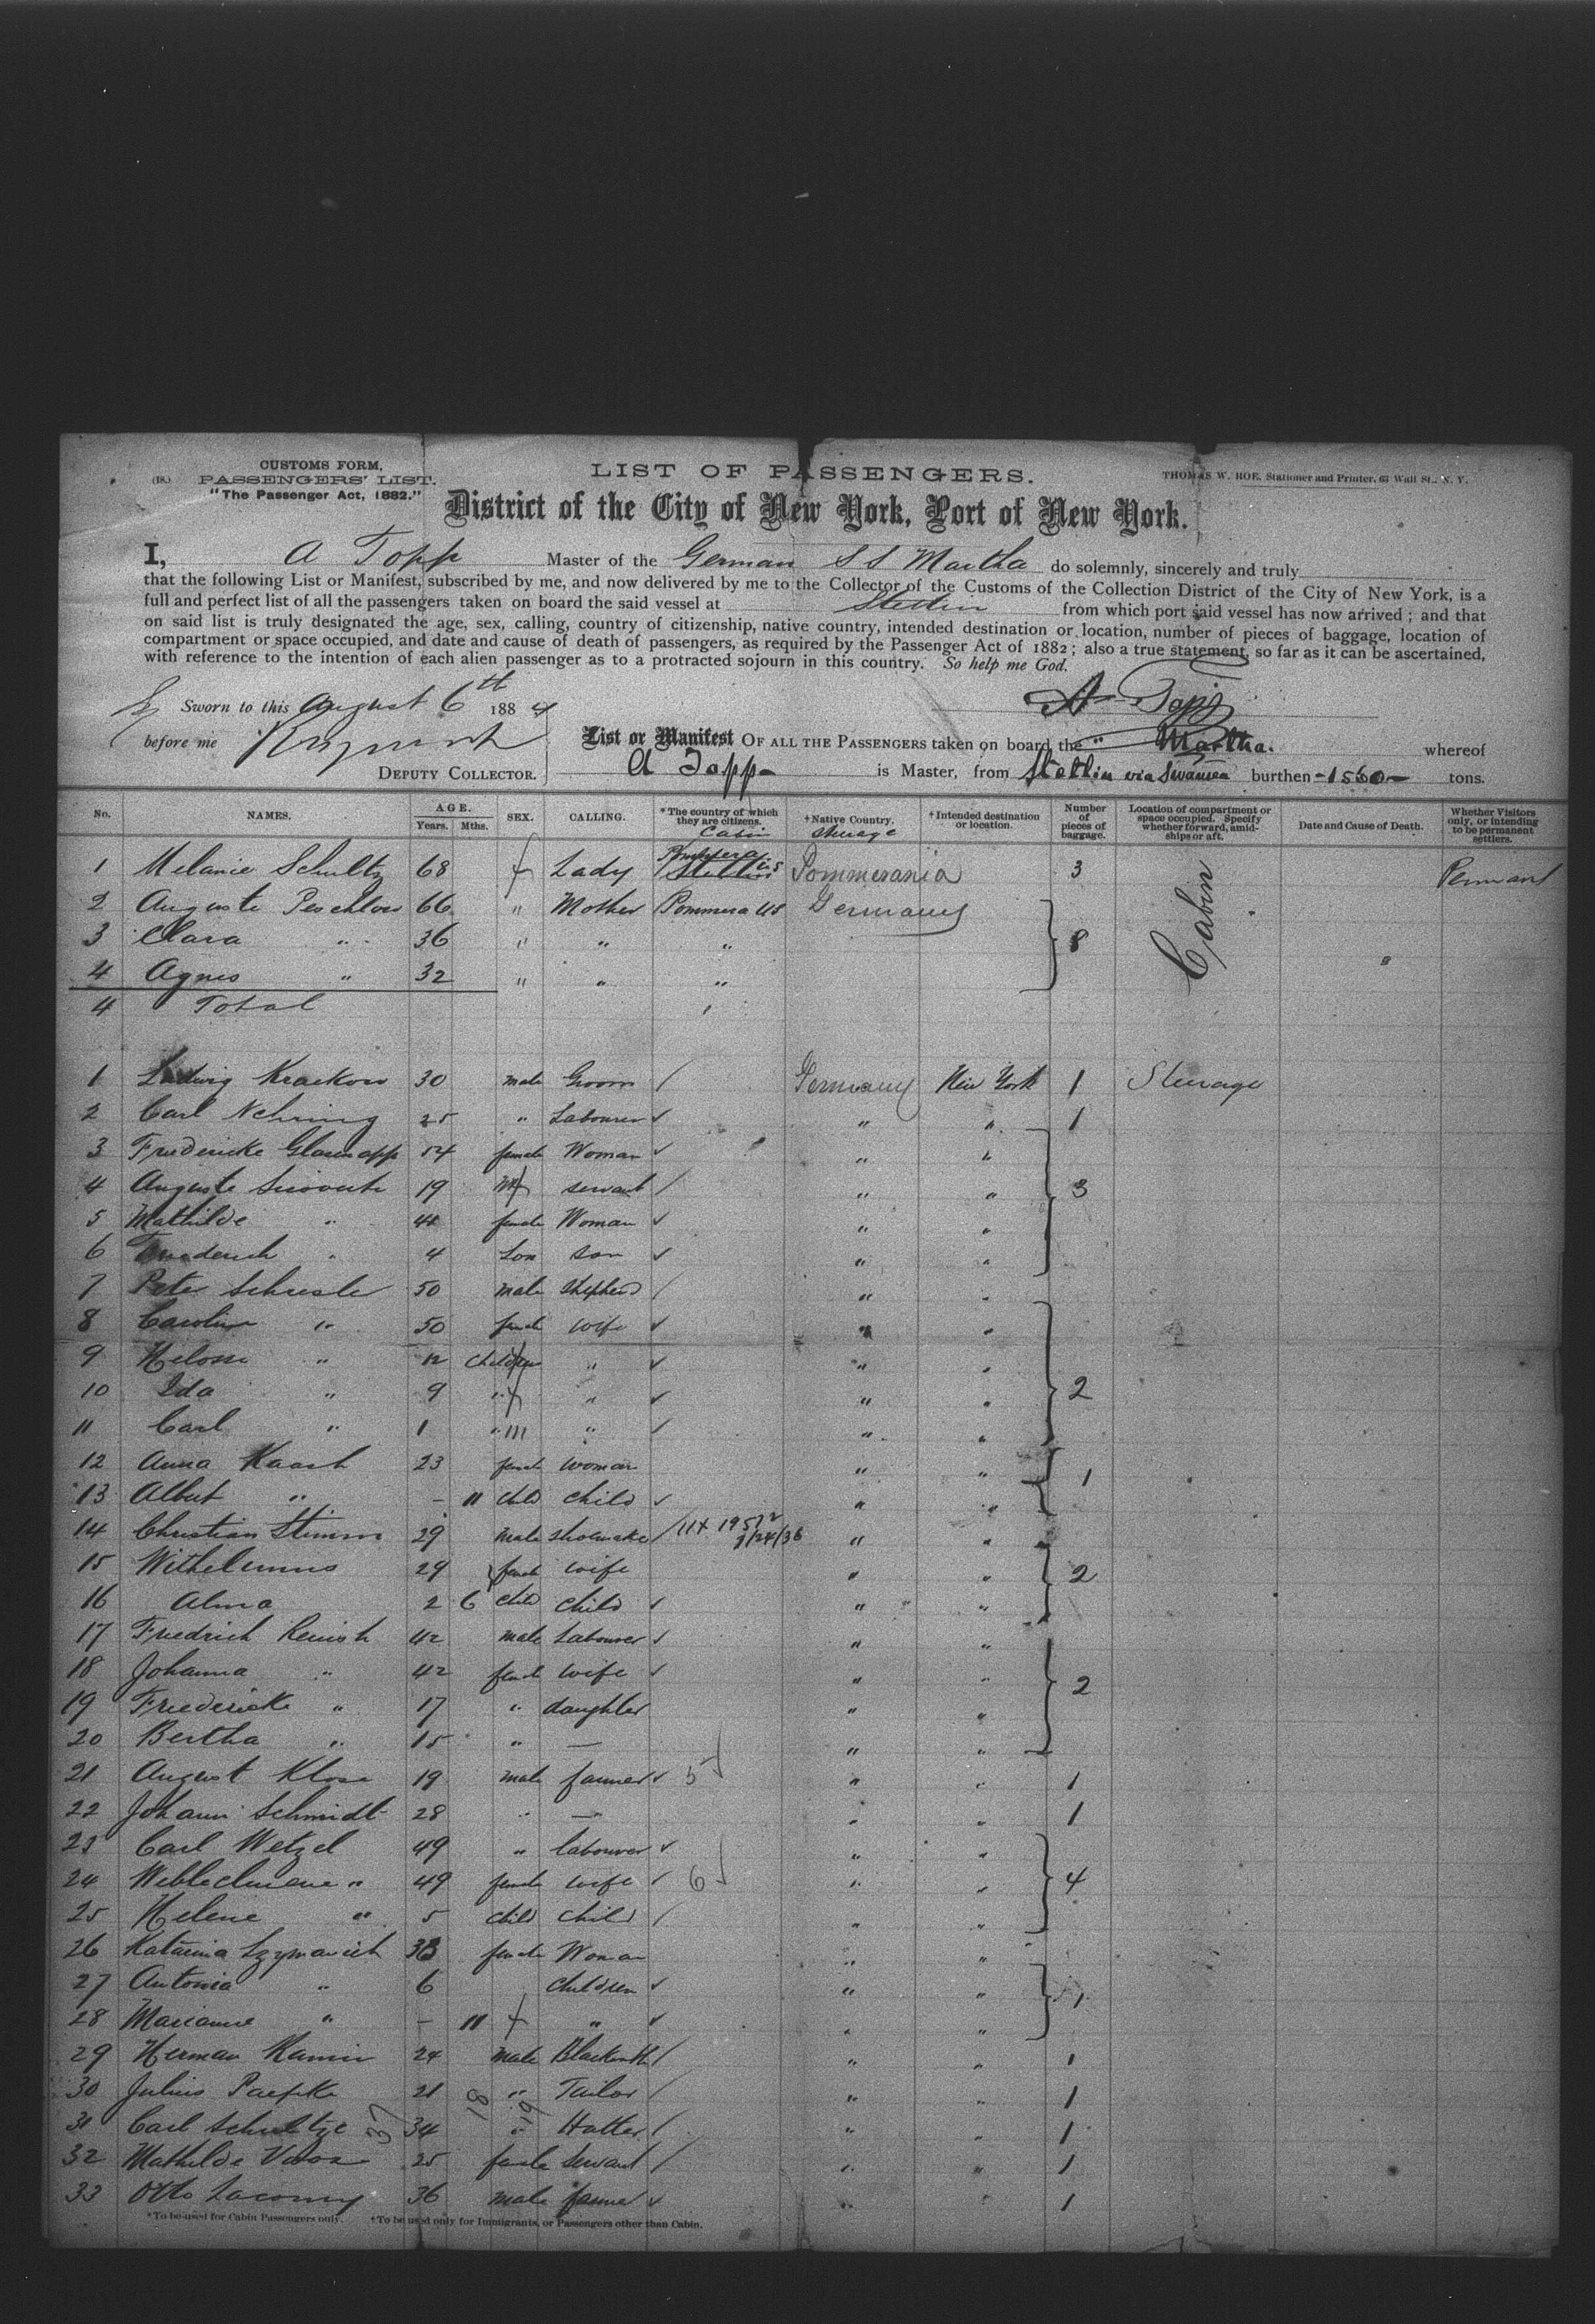 (18.)
CUSTOMS FORM,
PASSENGERS' LIST.
"The Passenger Act, 1882."
LIST OF PASSENGERS.
THOMAS W. ROE, Stationer and Printer, 63 Wall St., N. Y.
District of the City of New York, Port of New York.
I, A Topp Master of the German S S Martha do solemnly, sincerely and truly
that the following List or Manifest, subscribed by me, and now delivered by me to the Collector of the Customs of the Collection District of the City of New York, is a
full and perfect list of all the passengers taken on board the said vessel at Stettin from which port said vessel has now arrived; and that
on said list is truly designated the age, sex, calling, country of citizenship, native country, intended destination or location, number of pieces of baggage, location of
compartment or space occupied, and date and cause of death of passengers, as required by the Passenger Act of 1882; also a true statement, so far as it can be ascertained,
with reference to the intention of each alien passenger as to a protracted sojourn in this country. So help me God.
Sworn to this August 6th 1884
A Topp
before me
DEPUTY COLLECTOR.
List or Manifest OF ALL THE PASSENGERS taken on board the " Martha. whereof
A Topp is Master, from Stettin via Swansea burthen -1560- tons.
No. NAMES. AGE. Years. Mths. SEX. CALLING. *The country of which they are citizens. †Native Country. †Intended destination or location. Number of pieces of baggage. Location of compartment or space occupied. Specify whether forward, amidships or aft. Date and Cause of Death. Whether Visitors only, or intending to be permanent settlers.
Cabin Steerage
1 Melanie Schultz 68 f Lady US Pommerania 3 Cabin
2 Auguste 66 " Mother Pommera US Germany
3 Clara " 36 " " " 8
4 Agnes " 32 " " "
4 Total
1 Ludwig Krackow 30 male Groom / Germany New York 1 Steerage
2 Carl Nehring 25 " Labourer " " 1
3 Fredericke Glasenapp 54 female Woman " "
4 Auguste 19 f servant / " " 3
5 Mathilde " female Woman " "
6 Frederich " 4 Son son " "
7 Peter 50 male Shepherd / " "
8 Caroline " 50 female wife " "
9 " 12 children " " "
10 Ida " 9 " f " " " 2
11 Carl " 1 " m " " "
12 Anna Kaash 23 female woman " " 1
13 Albert " - 11 child child " "
14 Christian Stimm 29 male shoemaker / " "
15 29 female wife " " 2
16 Alma 2 6 child child " "
17 Friedrich 42 male Labourer " "
18 Johanna " 42 female wife " " 2
19 Friedericke " 17 " daughter " "
20 Bertha " 15 " — " "
21 August Klose 19 male farmer 5 " " 1
22 Johann Schmidt 28 " — " " 1
23 Carl Wetzel 49 " labourer " "
24 " 49 female wife 6 " " 4
25 Helene " 5 child child / " "
26 Katarina 33 female Woman " "
27 Antonia " 6 children " " 1
28 Marianne " - 11 f " " "
29 Herman Kamin 24 male Blacksmth / " " 1
30 Julius Paepke 21 " Tailor / " " 1
31 Carl Schultze 34 " Hatter / " " 1
32 Mathilde 25 female Servant / " " 1
33 Otto 36 male farmer " " 1
37 18 19
*To be used for Cabin Passengers only. †To be used only for Immigrants, or Passengers other than Cabin.